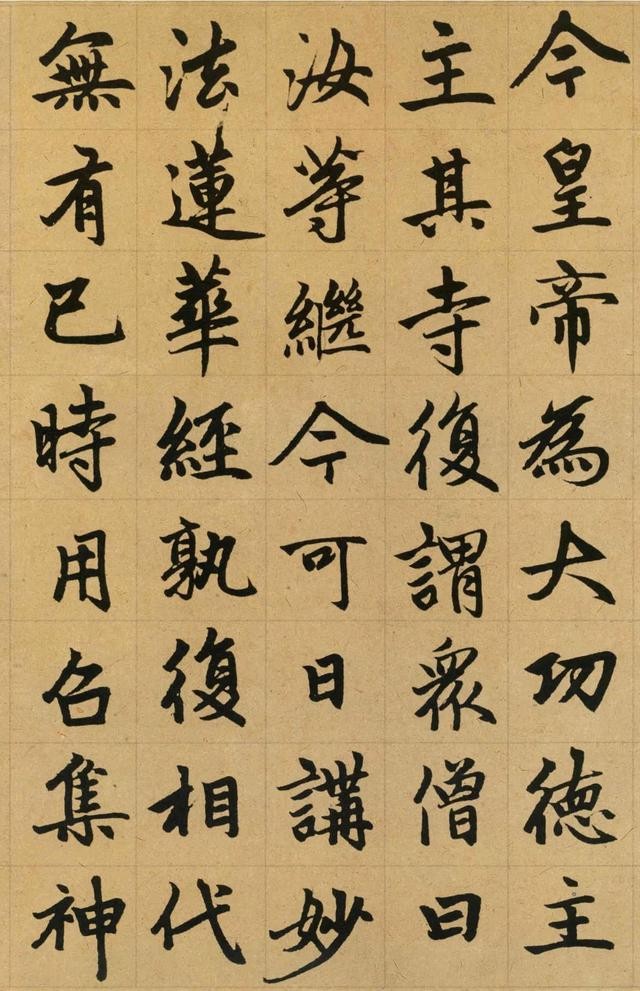 今皇帝為大功德主
主其寺復謂眾僧曰
汝等繼今可日講妙
法蓮華經孰復相代
無有已時用召集神